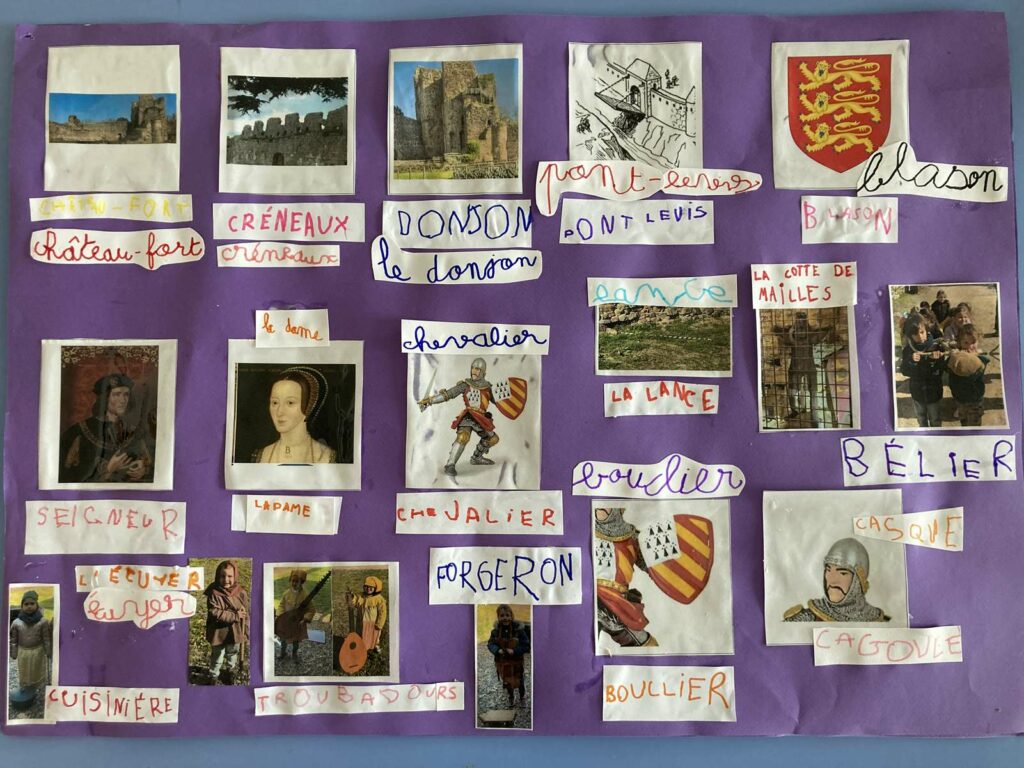 CHÂTEAU-FORT
château-fort
CRÉNEAUX
créneaux
DONJON
le donjon
pont-levis
PONT LEVIS
blason
BLASON
SEIGNEUR
la dame
LADAME
chevalier
CHEVALIER
LANCE
LA LANCE
LA COTTE DE
MAILLES
BÉLIER
L'ÉCUYER
écuyer
CUISINIÈRE
TROUBADOURS
FORGERON
bouclier
BOULLIER
CASQUE
CAGOULE